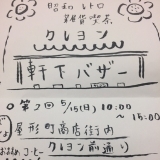 昭和レトロ
雑貨喫茶
クレヨン
軒下バザー
第7回 5/15(日) 10:00
~15:00
屋形町商店街内
クレヨン前通り